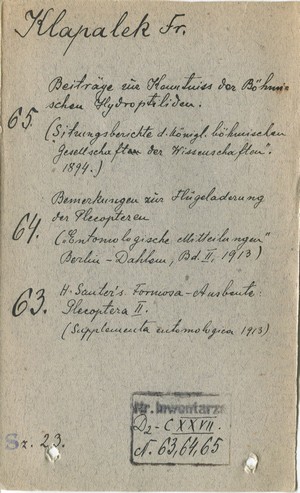 Klapalek Fr.
65. Beiträge zur Kenntniss der Böhmi-
schen Hydroptiliden.
(Sitzungsberichte d. königl. böhmischen
Gesellschaften der Wissenschaften".
1894.)
64. Bemerkungen zur Flügeladerung
der Plecopteren
("Entomologische Mitteilungen"
Berlin-Dahlem, Bd. II, 1913)
63. H. Sauter's Formosa-Ausbeute:
Plecoptera II.
(Supplementa entomologica 1913)
Nr. inwentarza
D2-CXXVII.
N. 63,64,65
Sz. 23.